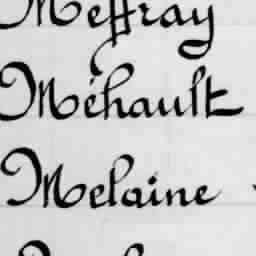 Meffray
Méhault
Melaine